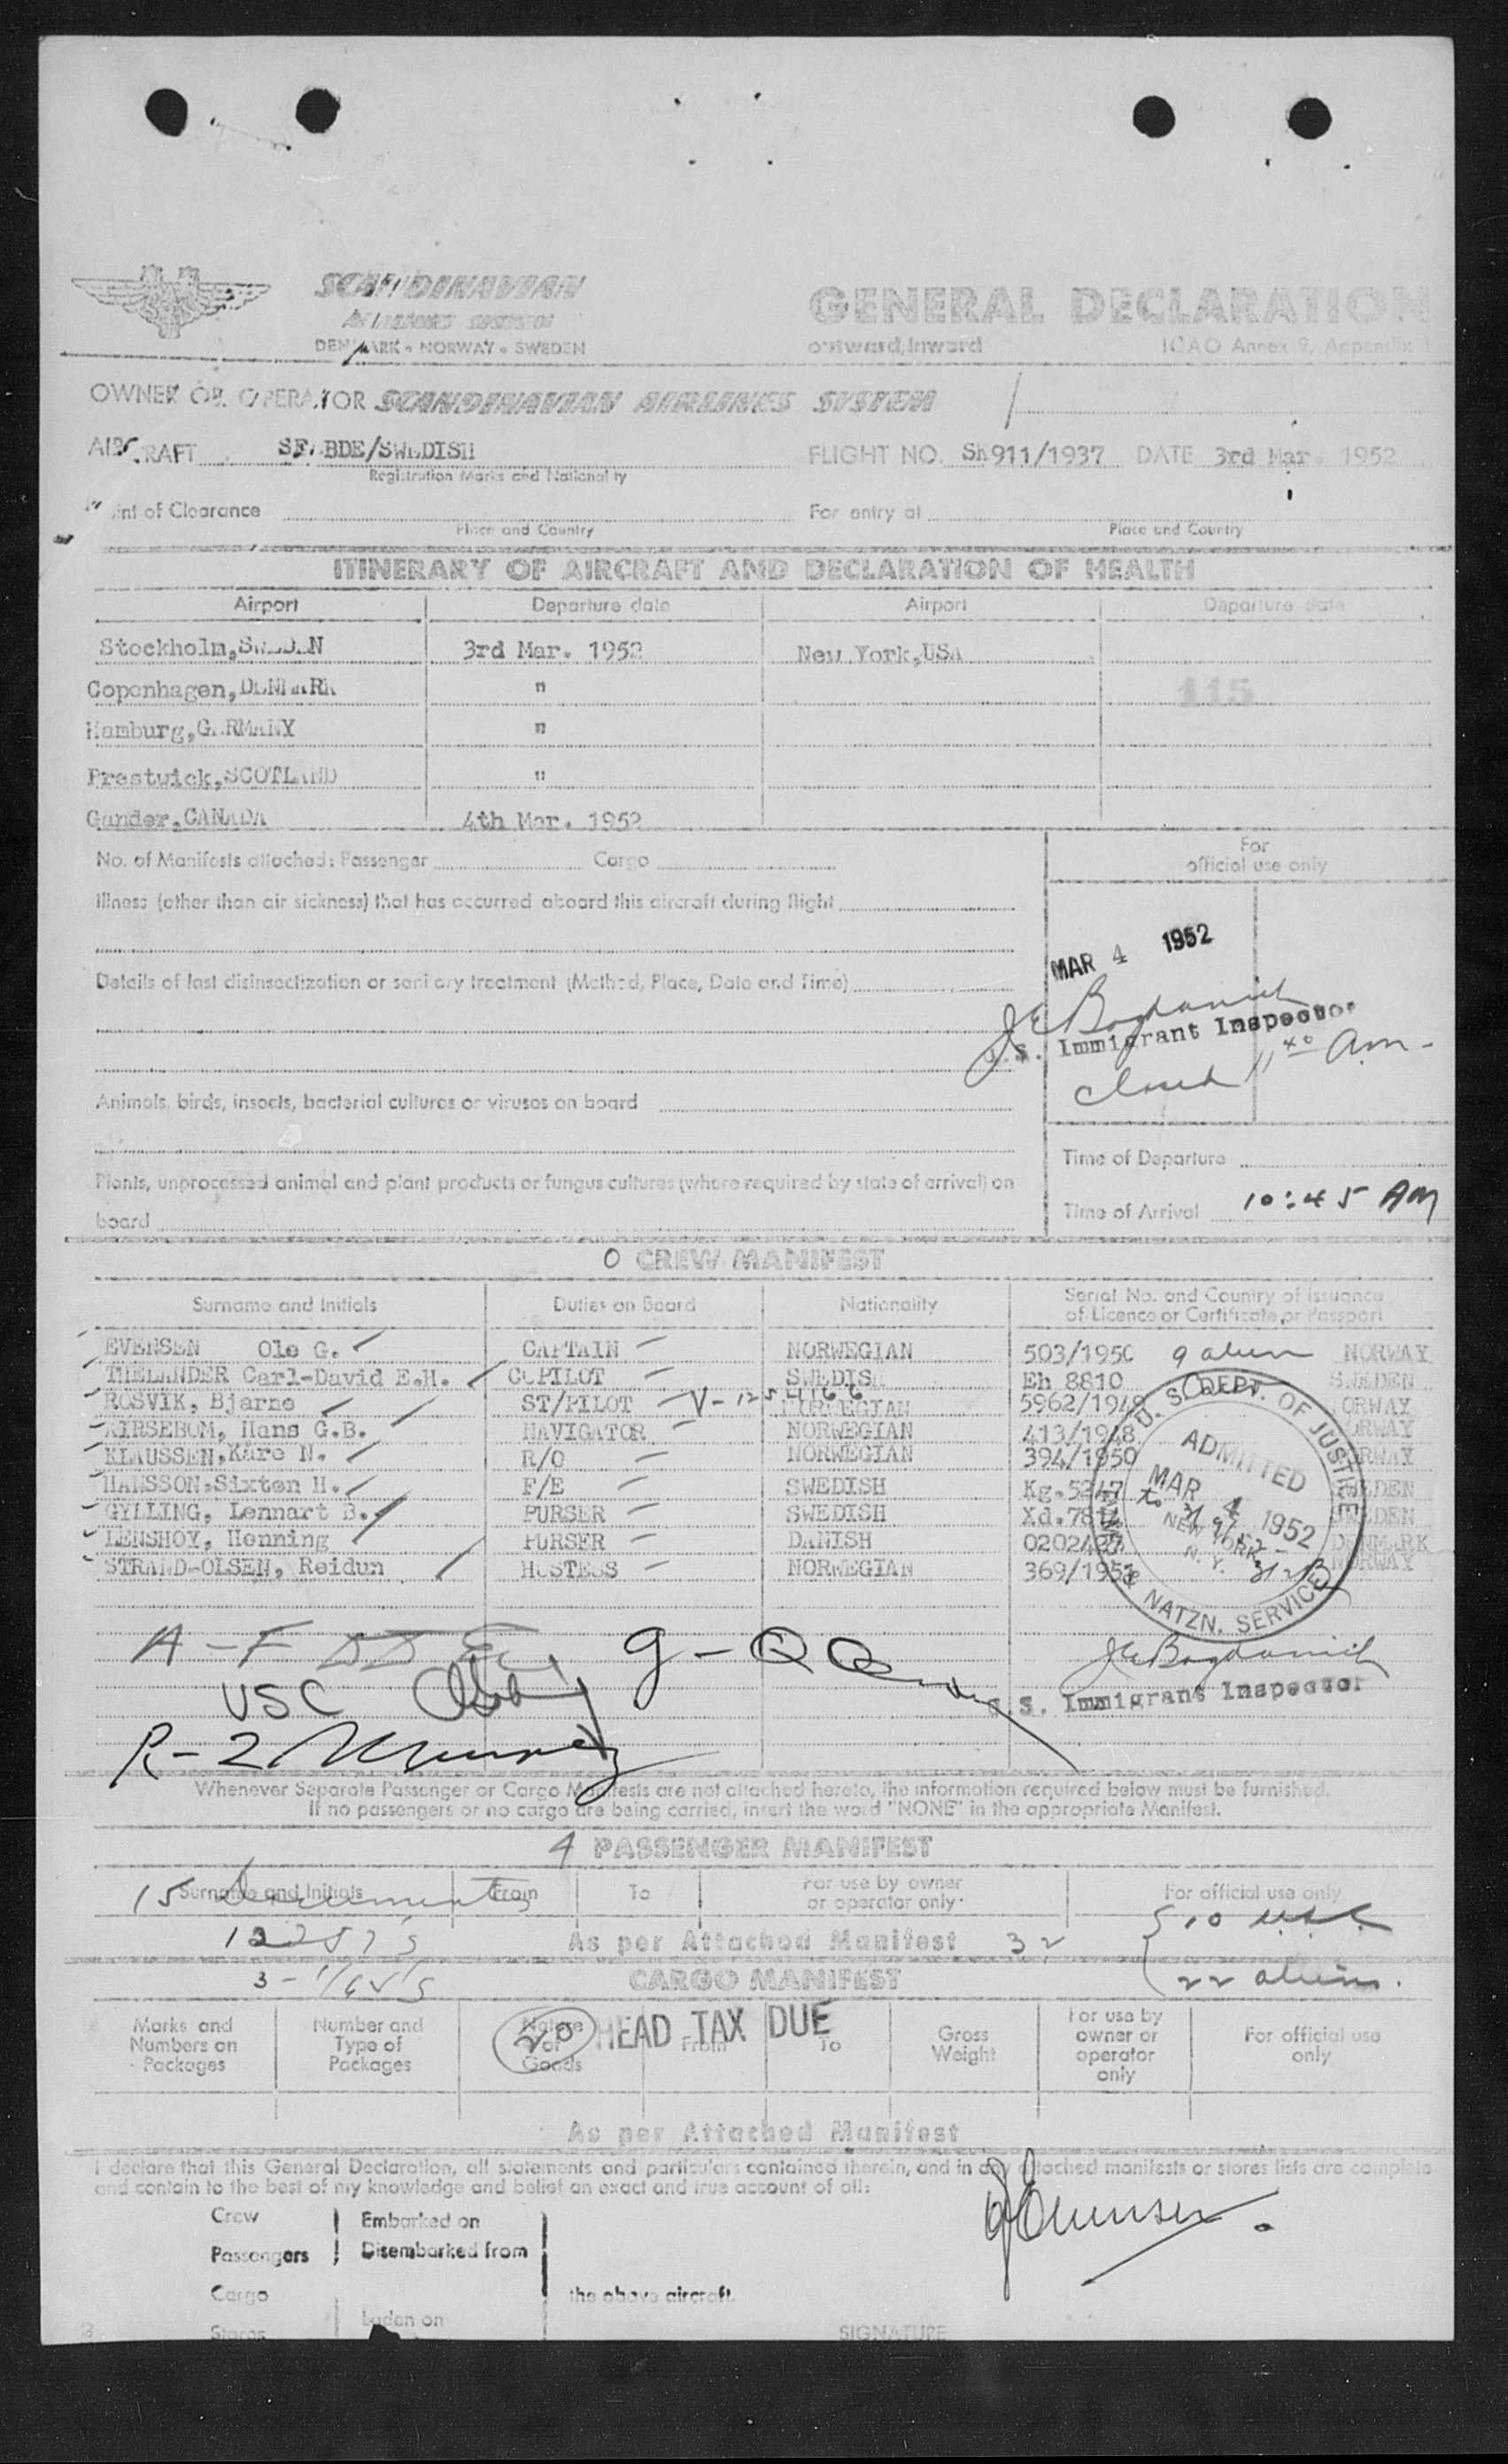 SCANDINAVIAN
AIRLINES SYSTEM
DENMARK • NORWAY • SWEDEN
GENERAL DECLARATION
outward, Inward
ICAO Annex 9, Appendix 1
OWNER OR OPERATOR SCANDINAVIAN AIRLINES SYSTEM
AIRCRAFT SE-BDE/SWEDISH
FLIGHT NO. SK911/1937 DATE 3rd Mar. 1952
Registration Marks and Nationality
Point of Clearance
For entry at
Place and Country
Place and Country
ITINERARY OF AIRCRAFT AND DECLARATION OF HEALTH
Airport Departure date Airport Departure date
Stockholm,SWEDEN 3rd Mar. 1952 New York,USA
Copenhagen,DENMARK " 115
Hamburg,GERMANY "
Prestwick,SCOTLAND "
Gander,CANADA 4th Mar. 1952
No. of Manifests attached: Passenger Cargo
For
official use only
Illness (other than air sickness) that has occurred aboard this aircraft during flight
MAR 4 1952
Details of last disinsectization or sanitary treatment (Method, Place, Date and Time)
J E Bogdanich
U.S. Immigrant Inspector
closed 11 40 AM-
Animals, birds, insects, bacterial cultures or viruses on board
Time of Departure
Plants, unprocessed animal and plant products or fungus cultures (where required by state of arrival) on
board
Time of Arrival 10:45 AM
0 CREW MANIFEST
Surname and Initials Duties on Board Nationality Serial No. and Country of issuance
of Licence or Certificate or Passport
EVENSEN Ole G. CAPTAIN NORWEGIAN 503/1950 9 alien NORWAY
THELANDER Carl-David E.H. COPILOT SWEDISH Eh 8810 SWEDEN
ROSVIK, Bjarne ST/PILOT V-1254166 NORWEGIAN 5962/1949 NORWAY
KIRSEBOM, Hans G.B. NAVIGATOR NORWEGIAN 413/1948 NORWAY
KLAUSSEN,Kåre N. R/O NORWEGIAN 394/1950 NORWAY
HANSSON,Sixten H. F/E SWEDISH Kg.5247 SWEDEN
GYLLING, Lennart B. PURSER SWEDISH Xd. SWEDEN
LENSHOY, Henning PURSER DANISH DENMARK
STRAND-OLSEN, Reidun HOSTESS NORWEGIAN 369/1951 NORWAY
U. S. DEPT. OF JUSTICE
ADMITTED
MAR 4 1952
NEW YORK
N. Y.
& NATZN. SERVICE
A-F
G-Q
USC
J E Bogdanich
U.S. Immigrant Inspector
R-2
Whenever Separate Passenger or Cargo Manifests are not attached hereto, the information required below must be furnished.
If no passengers or no cargo are being carried, insert the word "NONE" in the appropriate Manifest.
4 PASSENGER MANIFEST
Surname and Initials From To For use by owner
or operator only For official use only
15 Documents
10 USC
As per Attached Manifest 32
22 aliens.
CARGO MANIFEST
20 HEAD TAX DUE
Marks and
Numbers on
Packages
Number and
Type of
Packages
Nature
of
Goods
From
To
Gross
Weight
For use by
owner or
operator
only
For official use
only
As per Attached Manifest
I declare that this General Declaration, all statements and particulars contained therein, and in any attached manifests or stores lists are complete
and contain to the best of my knowledge and belief an exact and true account of all:
Crew Embarked on
Passengers Disembarked from
Cargo the above aircraft.
Stores Laden on
SIGNATURE